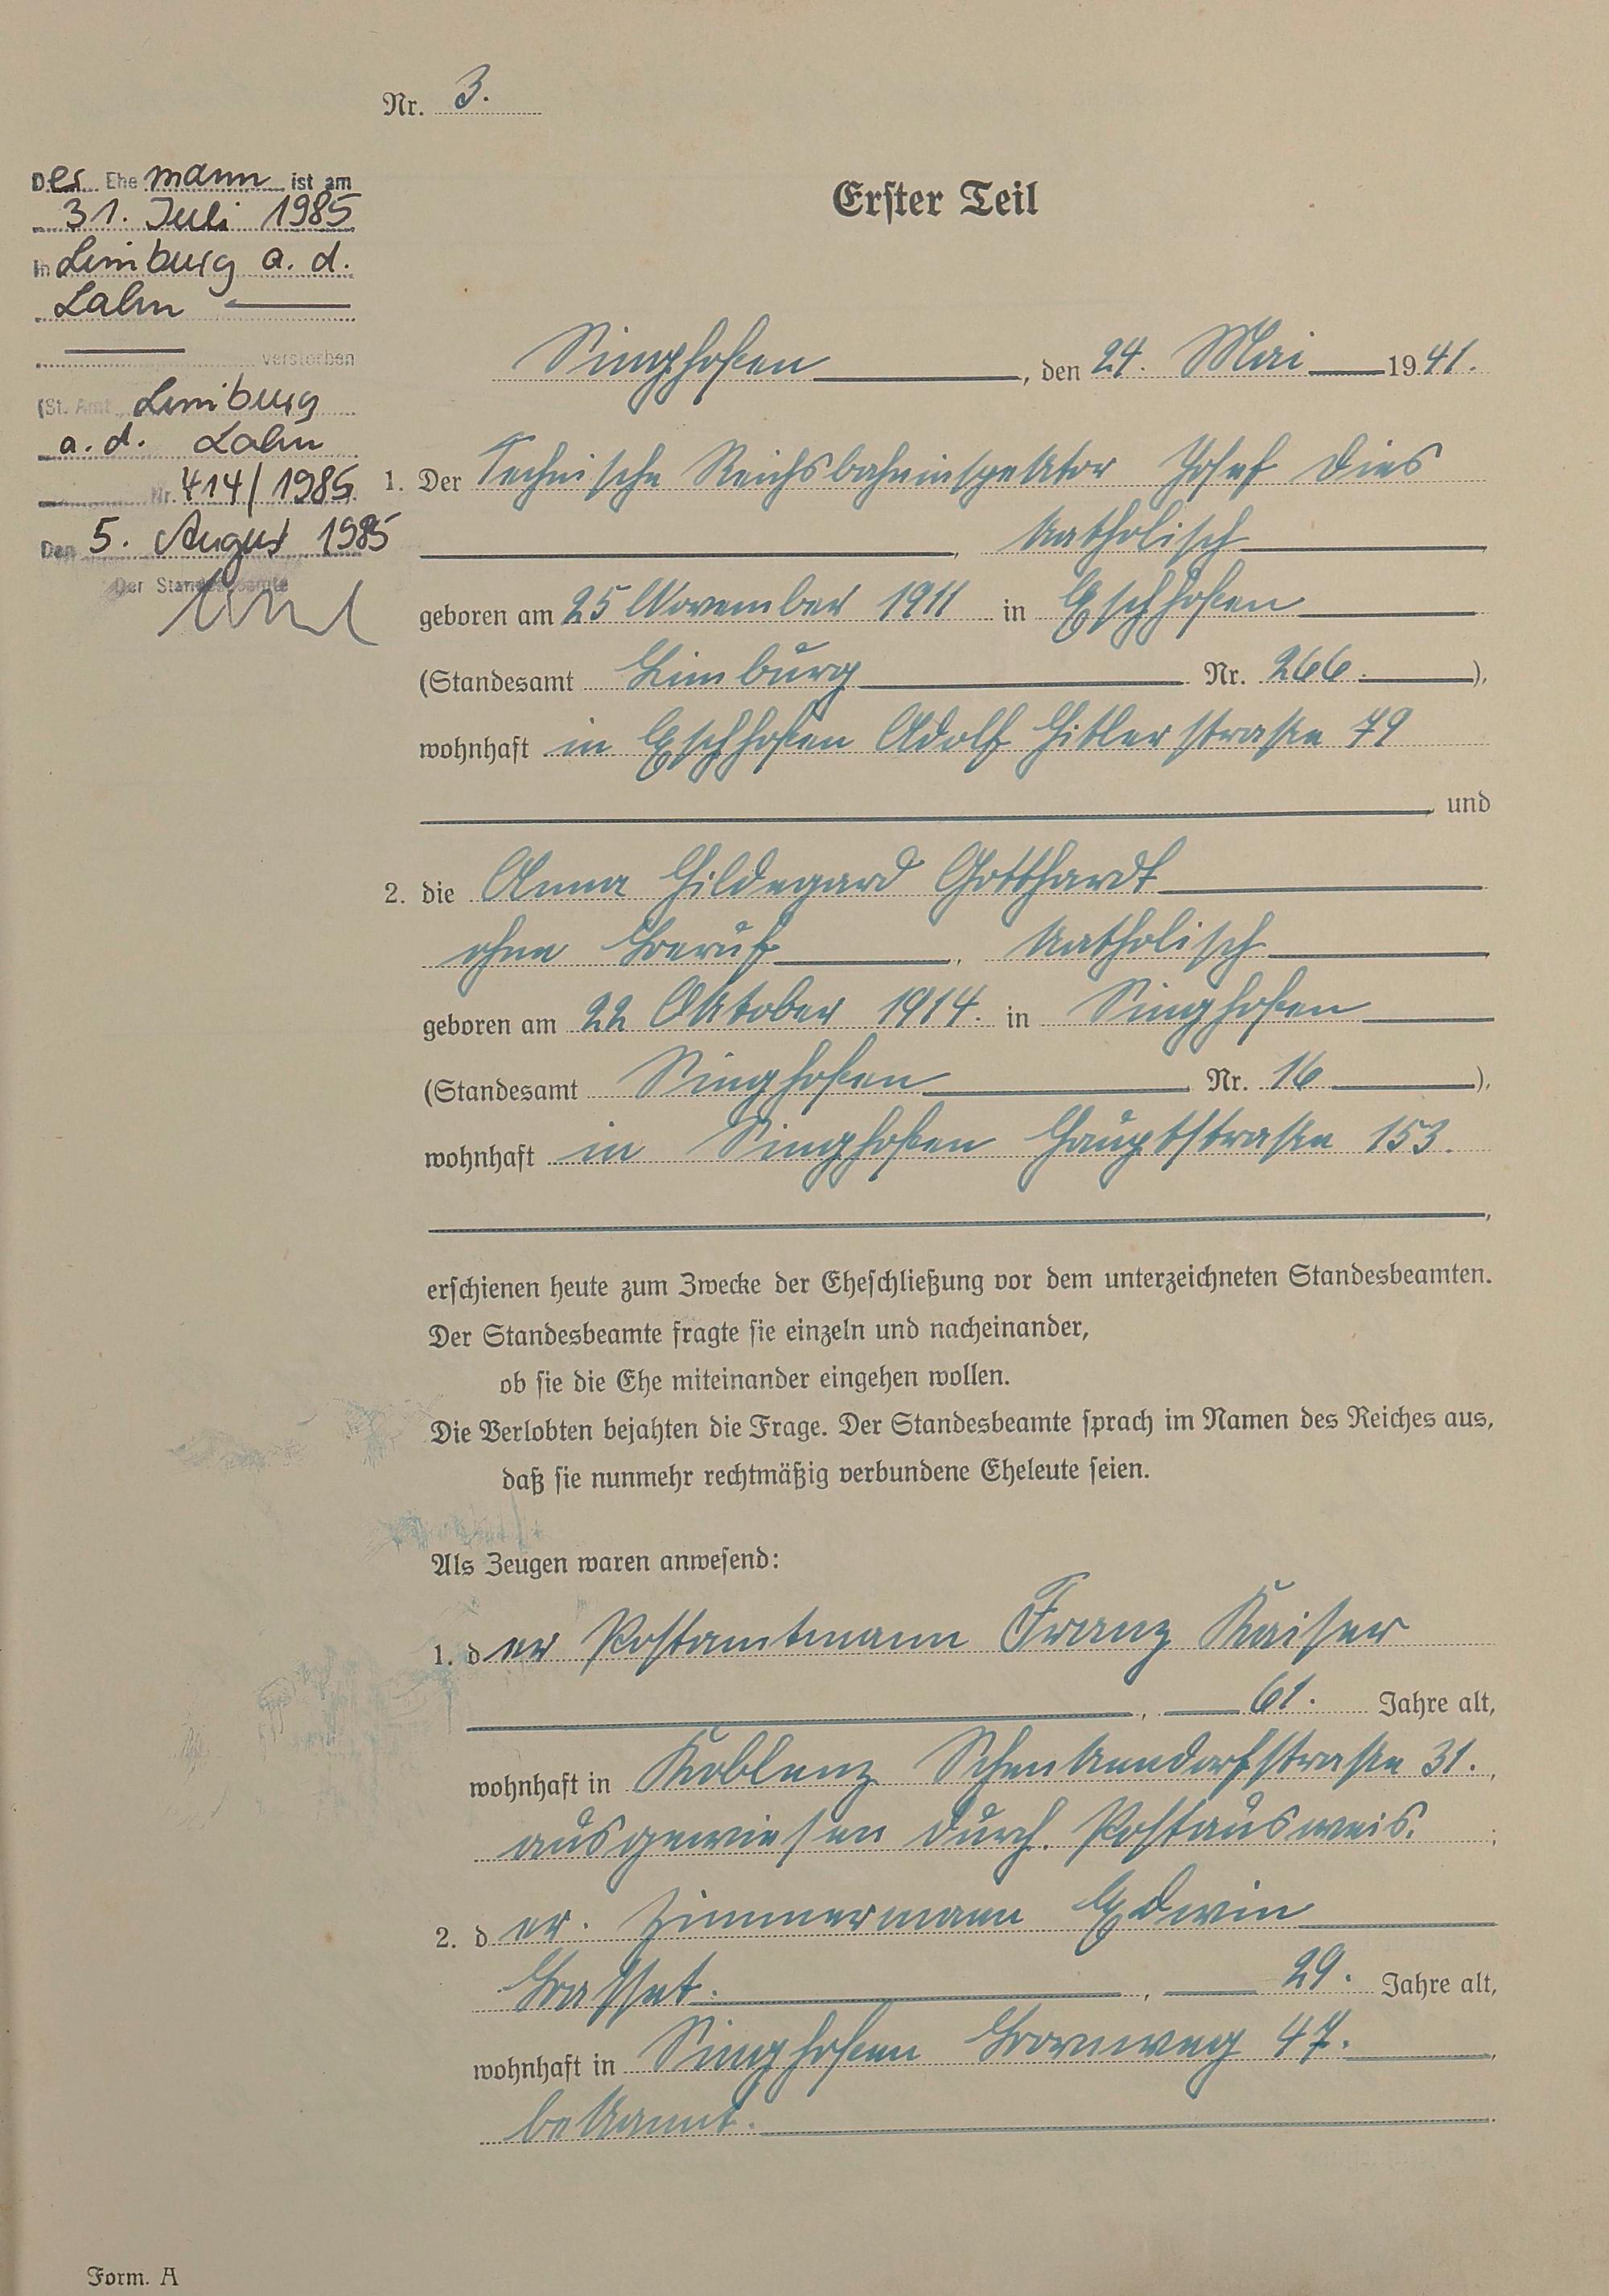 Nr. 3.
Der Ehemann ist am
31. Juli 1985
in Limburg a. d.
Lahn
verstorben
(St. Amt Limburg
a. d. Lahn
Nr. 414/1985.
Den 5. August 1985
Der Standesbeamte
Erster Teil
Singhofen, den 24. Mai 1941.
1. Der Technische Reichsbahninspektor Josef Dies
, katholisch
geboren am 25 November 1911 in Eschhofen
(Standesamt Limburg Nr. 266.),
wohnhaft in Eschhofen Adolf Hitlerstraße 79
, und
2. die Anna Hildegard Gotthardt
ohne Beruf, katholisch
geboren am 22 Oktober 1914. in Singhofen
(Standesamt Singhofen Nr. 16),
wohnhaft in Singhofen Hauptstraße 153.
,
erschienen heute zum Zwecke der Eheschließung vor dem unterzeichneten Standesbeamten.
Der Standesbeamte fragte sie einzeln und nacheinander,
ob sie die Ehe miteinander eingehen wollen.
Die Verlobten bejahten die Frage. Der Standesbeamte sprach im Namen des Reiches aus,
daß sie nunmehr rechtmäßig verbundene Eheleute seien.
Als Zeugen waren anwesend:
1. der Postamtmann Franz Kaiser
, 61. Jahre alt,
wohnhaft in Koblenz Schenkendorfstraße 31.,
ausgewiesen durch Postausweis. ;
2. der. Zimmermann Edwin
Basset. , 29. Jahre alt,
wohnhaft in Singhofen Bornweg 47.,
bekannt. .
Form. A